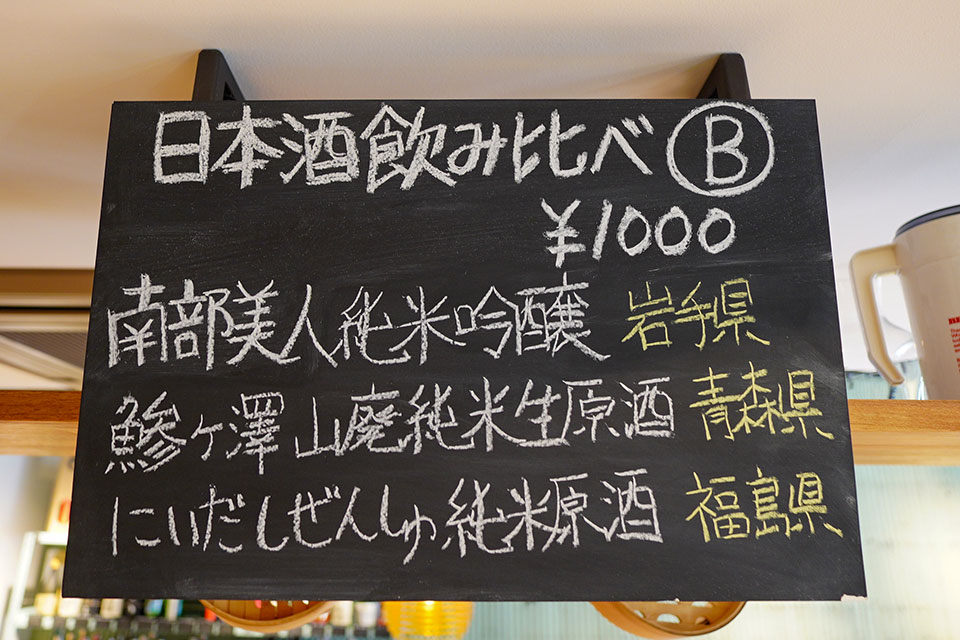 日本酒飲み比べ Ⓑ
¥1000
南部美人純米吟醸 岩手県
鰺ヶ澤 山廃純米生原酒 青森県
にいだしぜんしゅ純米原酒 福島県